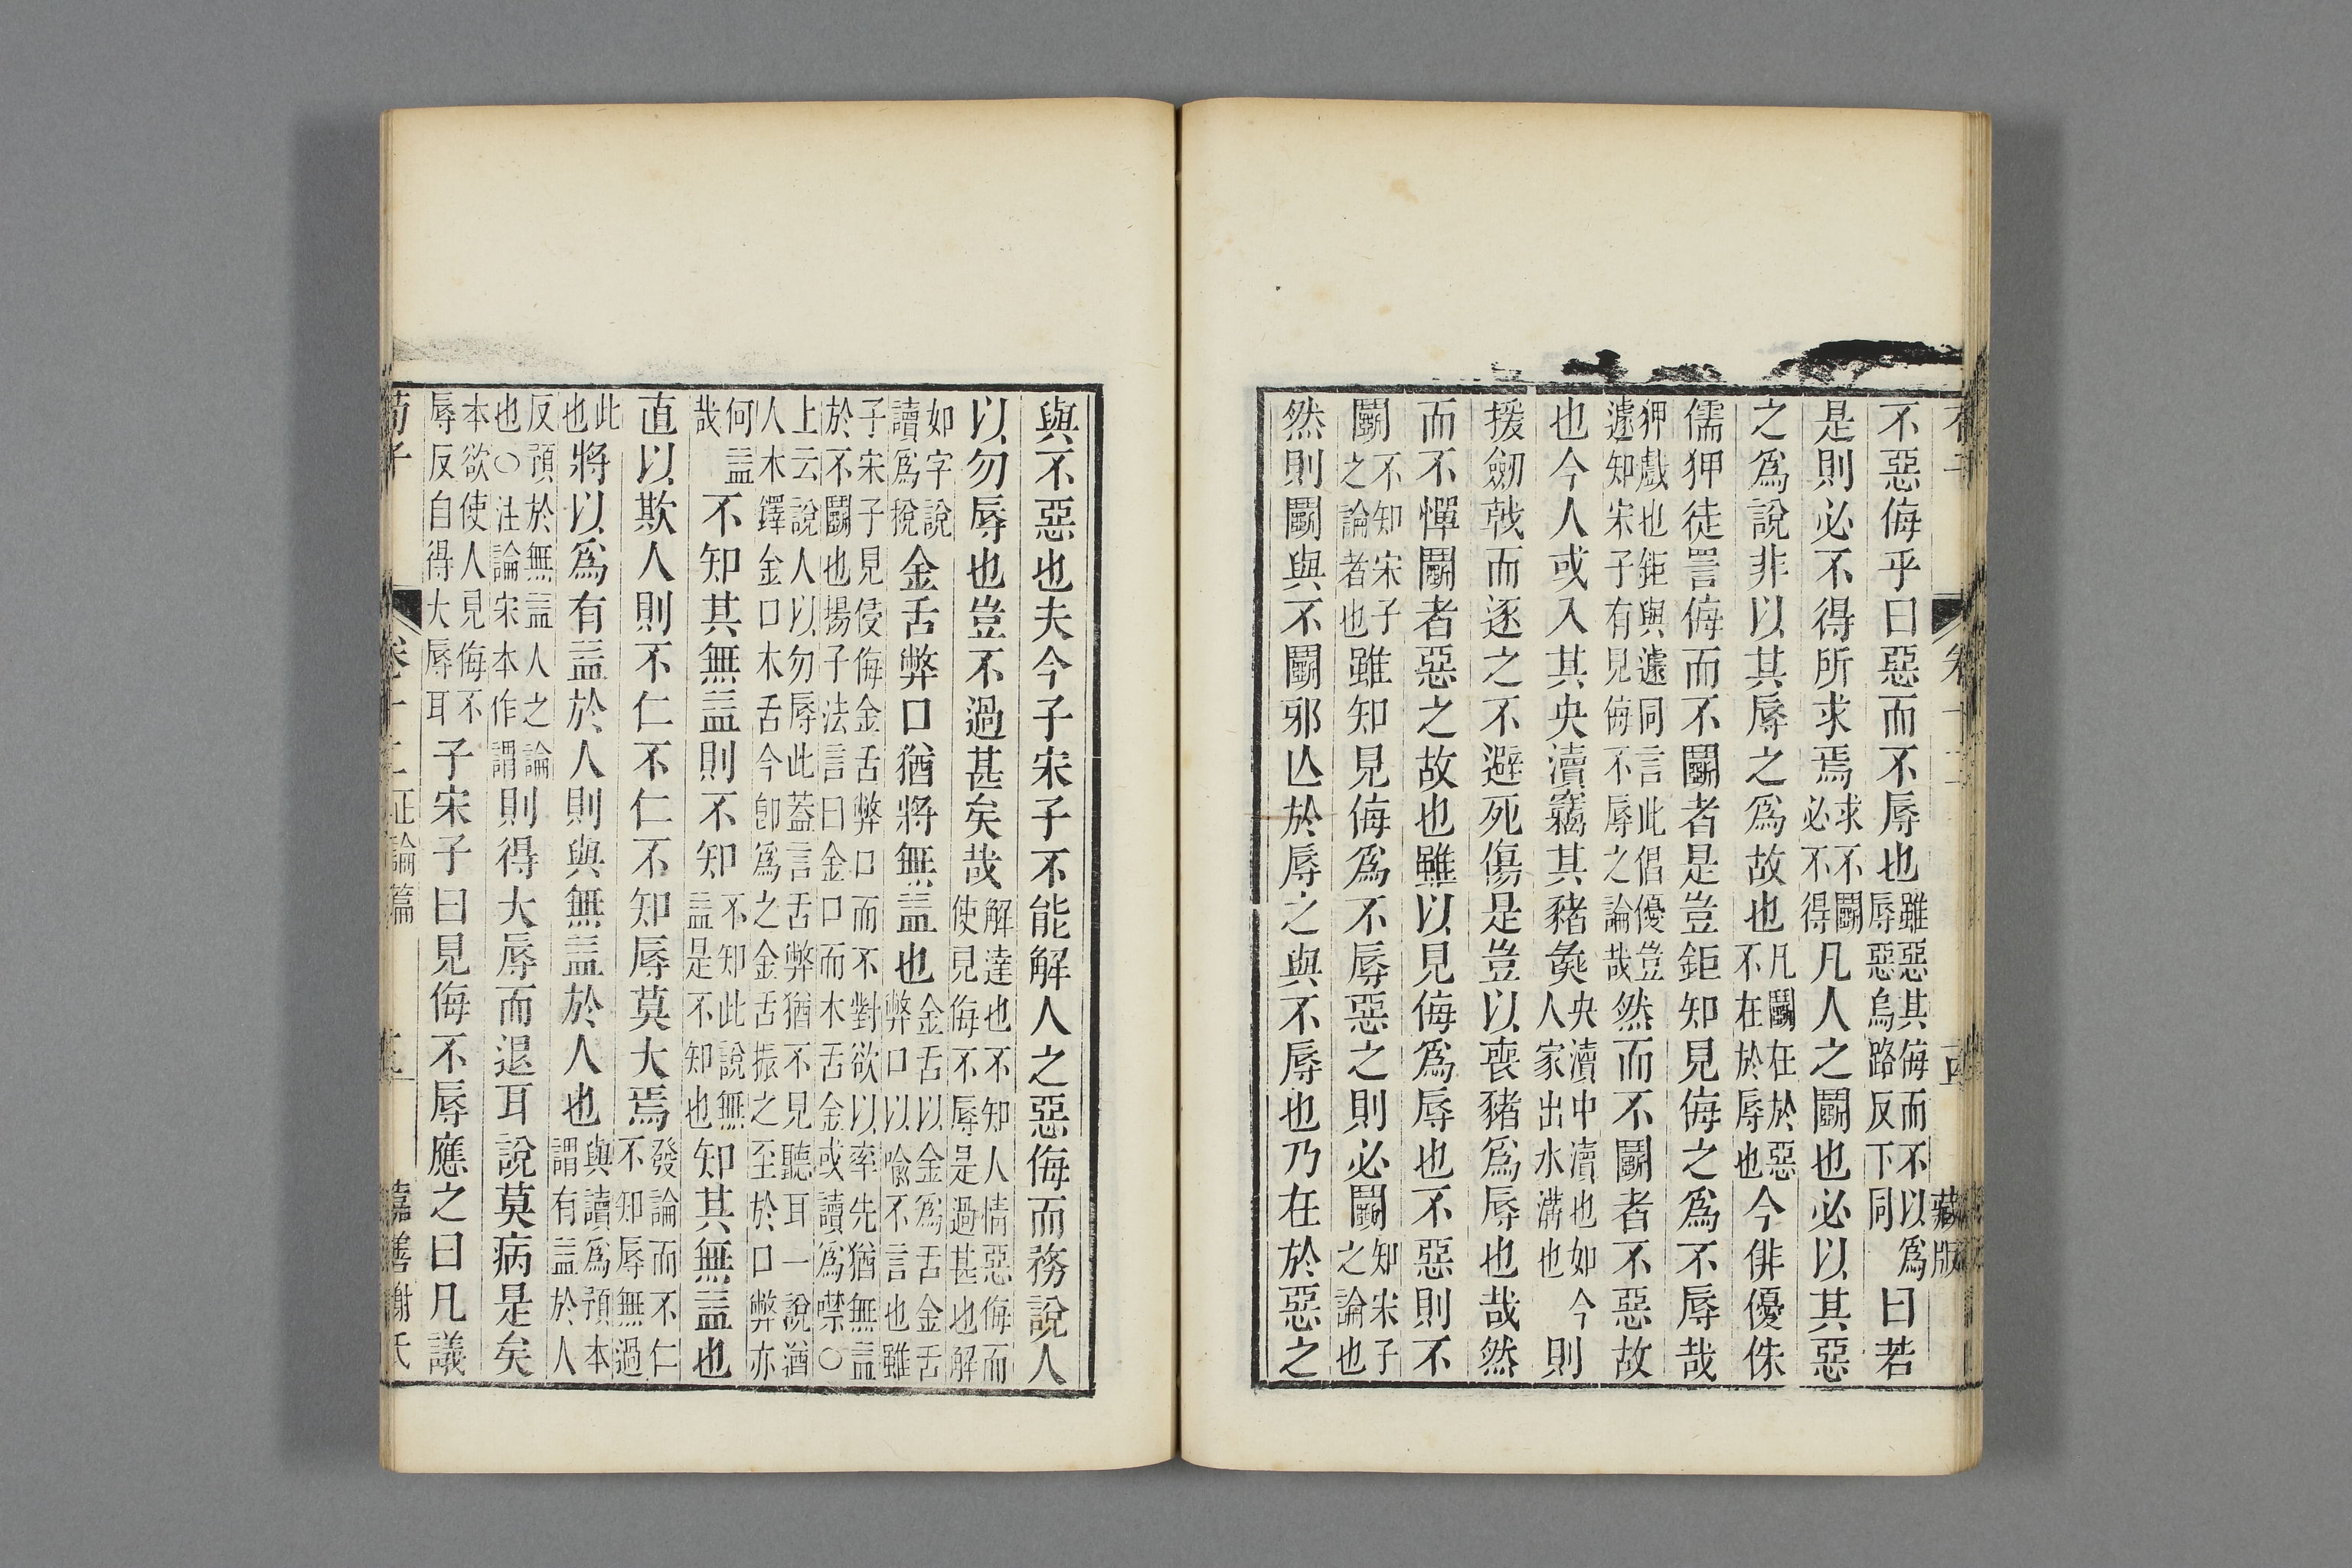 藏版
不惡侮乎曰惡而不辱也雖惡其侮而不以爲辱惡烏路反下同曰若
是則必不得所求焉求不鬭必不得凡人之鬭也必以其惡
之爲說非以其辱之爲故也凡鬭在於惡不在於辱也今俳優侏
儒狎徒詈侮而不鬭者是豈鉅知見侮之爲不辱哉
狎戲也鉅與遽同言此倡優豈遽知宋子有見侮不辱之論哉然而不鬭者不惡故
也今人或入其央瀆竊其豬彘央瀆中瀆也如今人家出水溝也則
援劒戟而逐之不避死傷是豈以喪豬爲辱也哉然
而不憚鬭者惡之故也雖以見侮爲辱也不惡則不
鬭不知宋子之論者也雖知見侮爲不辱惡之則必鬭知宋子之論也
然則鬭與不鬭邪亾於辱之與不辱也乃在於惡之
與不惡也夫今子宋子不能解人之惡侮而務說人
以勿辱也豈不過甚矣哉解達也不知人情惡侮而使見侮不辱是過甚也解
如字說讀爲稅金舌弊口猶將無益也金舌以金爲舌金舌弊口以喻不言也雖
子宋子見侵侮金舌弊口而不對欲以率先猶無益於不鬭也揚子法言曰金口而木舌金或讀爲噤○
上云說人以勿辱此蓋言舌弊猶不見聽耳一說猶人木鐸金口木舌今卽爲之金舌振之至於口弊亦
何益哉不知其無益則不知不知此說無益是不知也知其無益也
直以欺人則不仁不仁不知辱莫大焉發論而不仁不知辱無過
此也將以爲有益於人則與無益於人也與讀爲預本謂有益於人
反預於無益人之論也○注論宋本作謂則得大辱而退耳說莫病是矣
本欲使人見侮不辱反自得大辱耳子宋子曰見侮不辱應之曰凡議
荀子 卷十二正論篇 嘉善謝氏